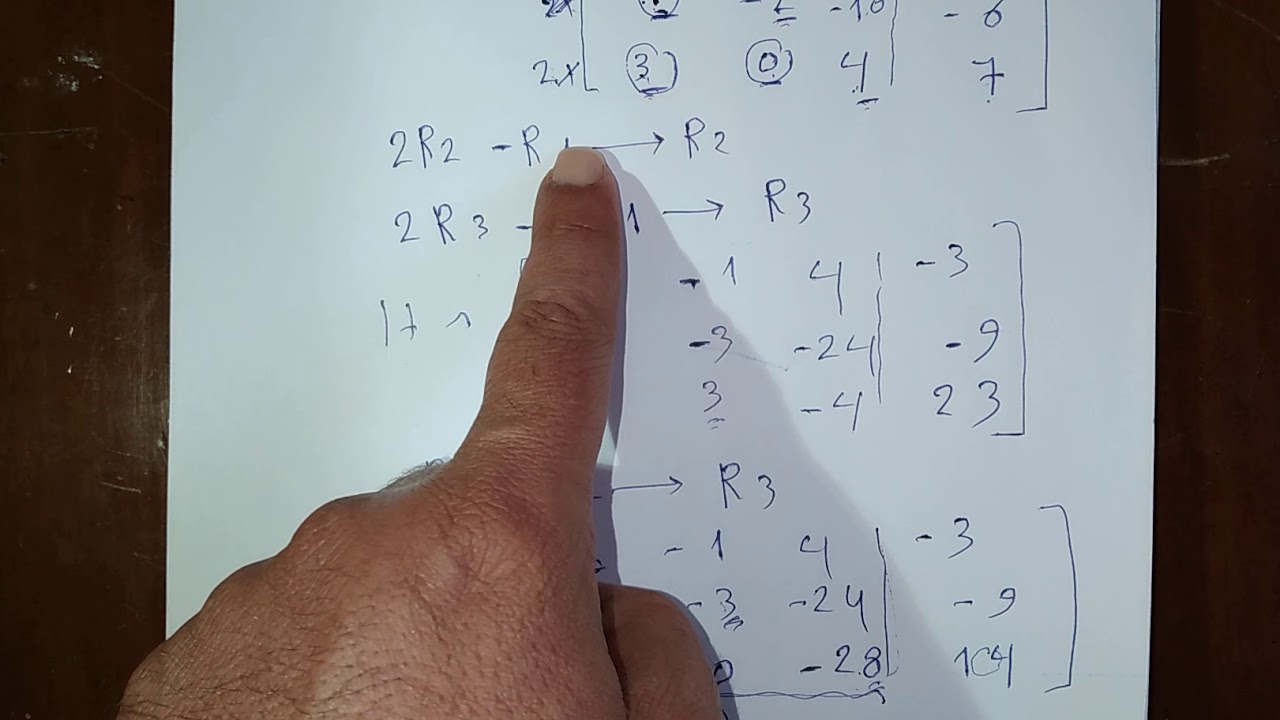 2x -2 -10 | - 6
2x 3 0 4 | 7
2R2 - R1 → R2
2R3 - 1 → R3
-1 4 | -3
-3 -24 | -9
3 -4 | 23
→ R3
-1 4 | -3
-3 -24 | -9
0 -28 | 104